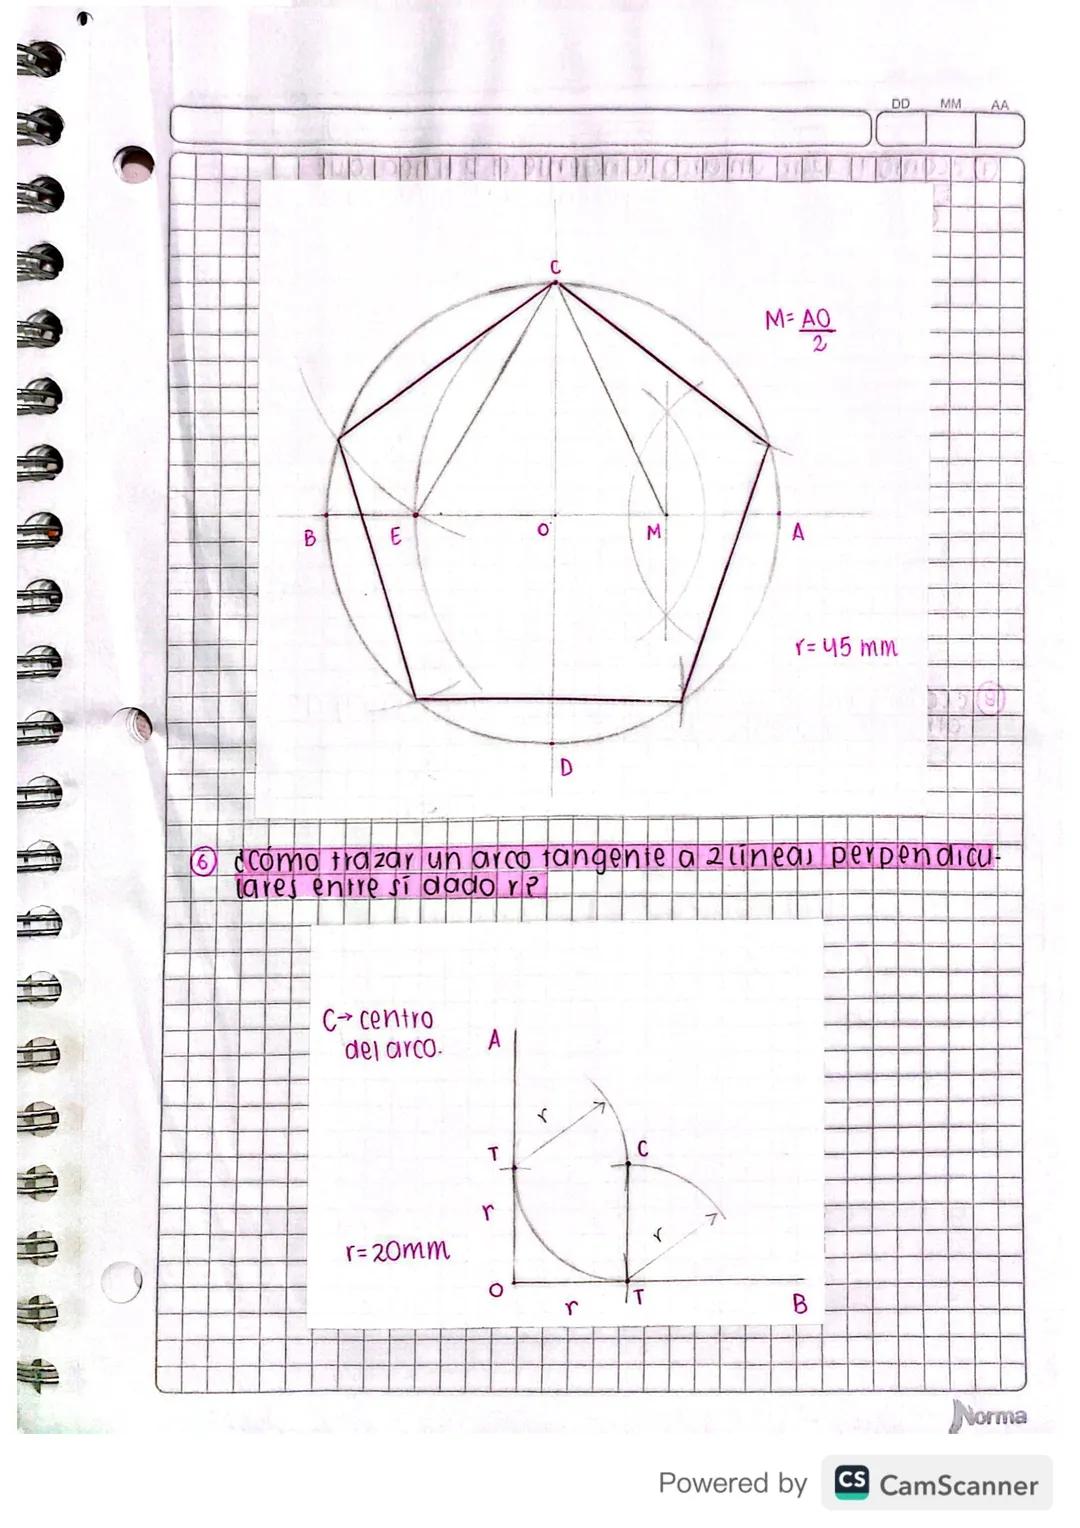 DD MM AA
C
M= AO
2
B E O M A
r= 45 mm
D
6 ¿Cómo trazar un arco tangente a 2 líneas perpendicu-
lares entre sí dado r?
C→ centro
del arco.
A
r
T
C
r
r
r=20mm
O
r
T
B
Norma
Powered by CS CamScanner